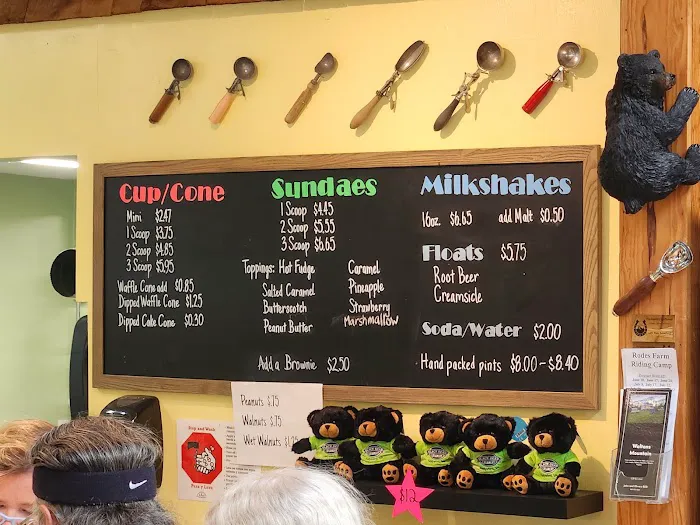 Cup/Cone
Mini $2.47
1 Scoop $3.75
2 Scoop $4.85
3 Scoop $5.95
Waffle Cone add $0.85
Dipped Waffle Cone $1.25
Dipped Cake Cone $0.30
Sundaes
1 Scoop $4.45
2 Scoop $5.55
3 Scoop $6.65
Toppings: Hot Fudge
Salted Caramel
Butterscotch
Peanut Butter
Caramel
Pineapple
Strawberry
Marshmallow
Add a Brownie $2.50
Milkshakes
16oz. $6.65 add Malt $0.50
Floats $5.75
Root Beer
Creamsicle
Soda/Water $2.00
Hand packed pints $8.00-$8.40
Peanuts $.75
Walnuts $.75
Wet Walnuts $1.
$12
Stop and Wash
Rodes Farm
Riding Camp
Waltons
Mountain